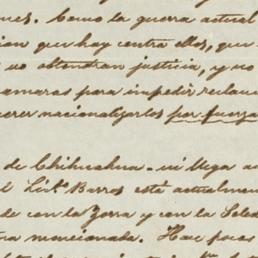 nes. Como la guerra actual
cion que hay contra ellos, que
no obtendran justicia, y no
amaras para impedir reclam
querer nacionalizarlos por fuerza
de Chihuahua - ni llega a
el Sir Barros está actualmen
de con la Zorra y con la Soled
mencionada. Hace pocos